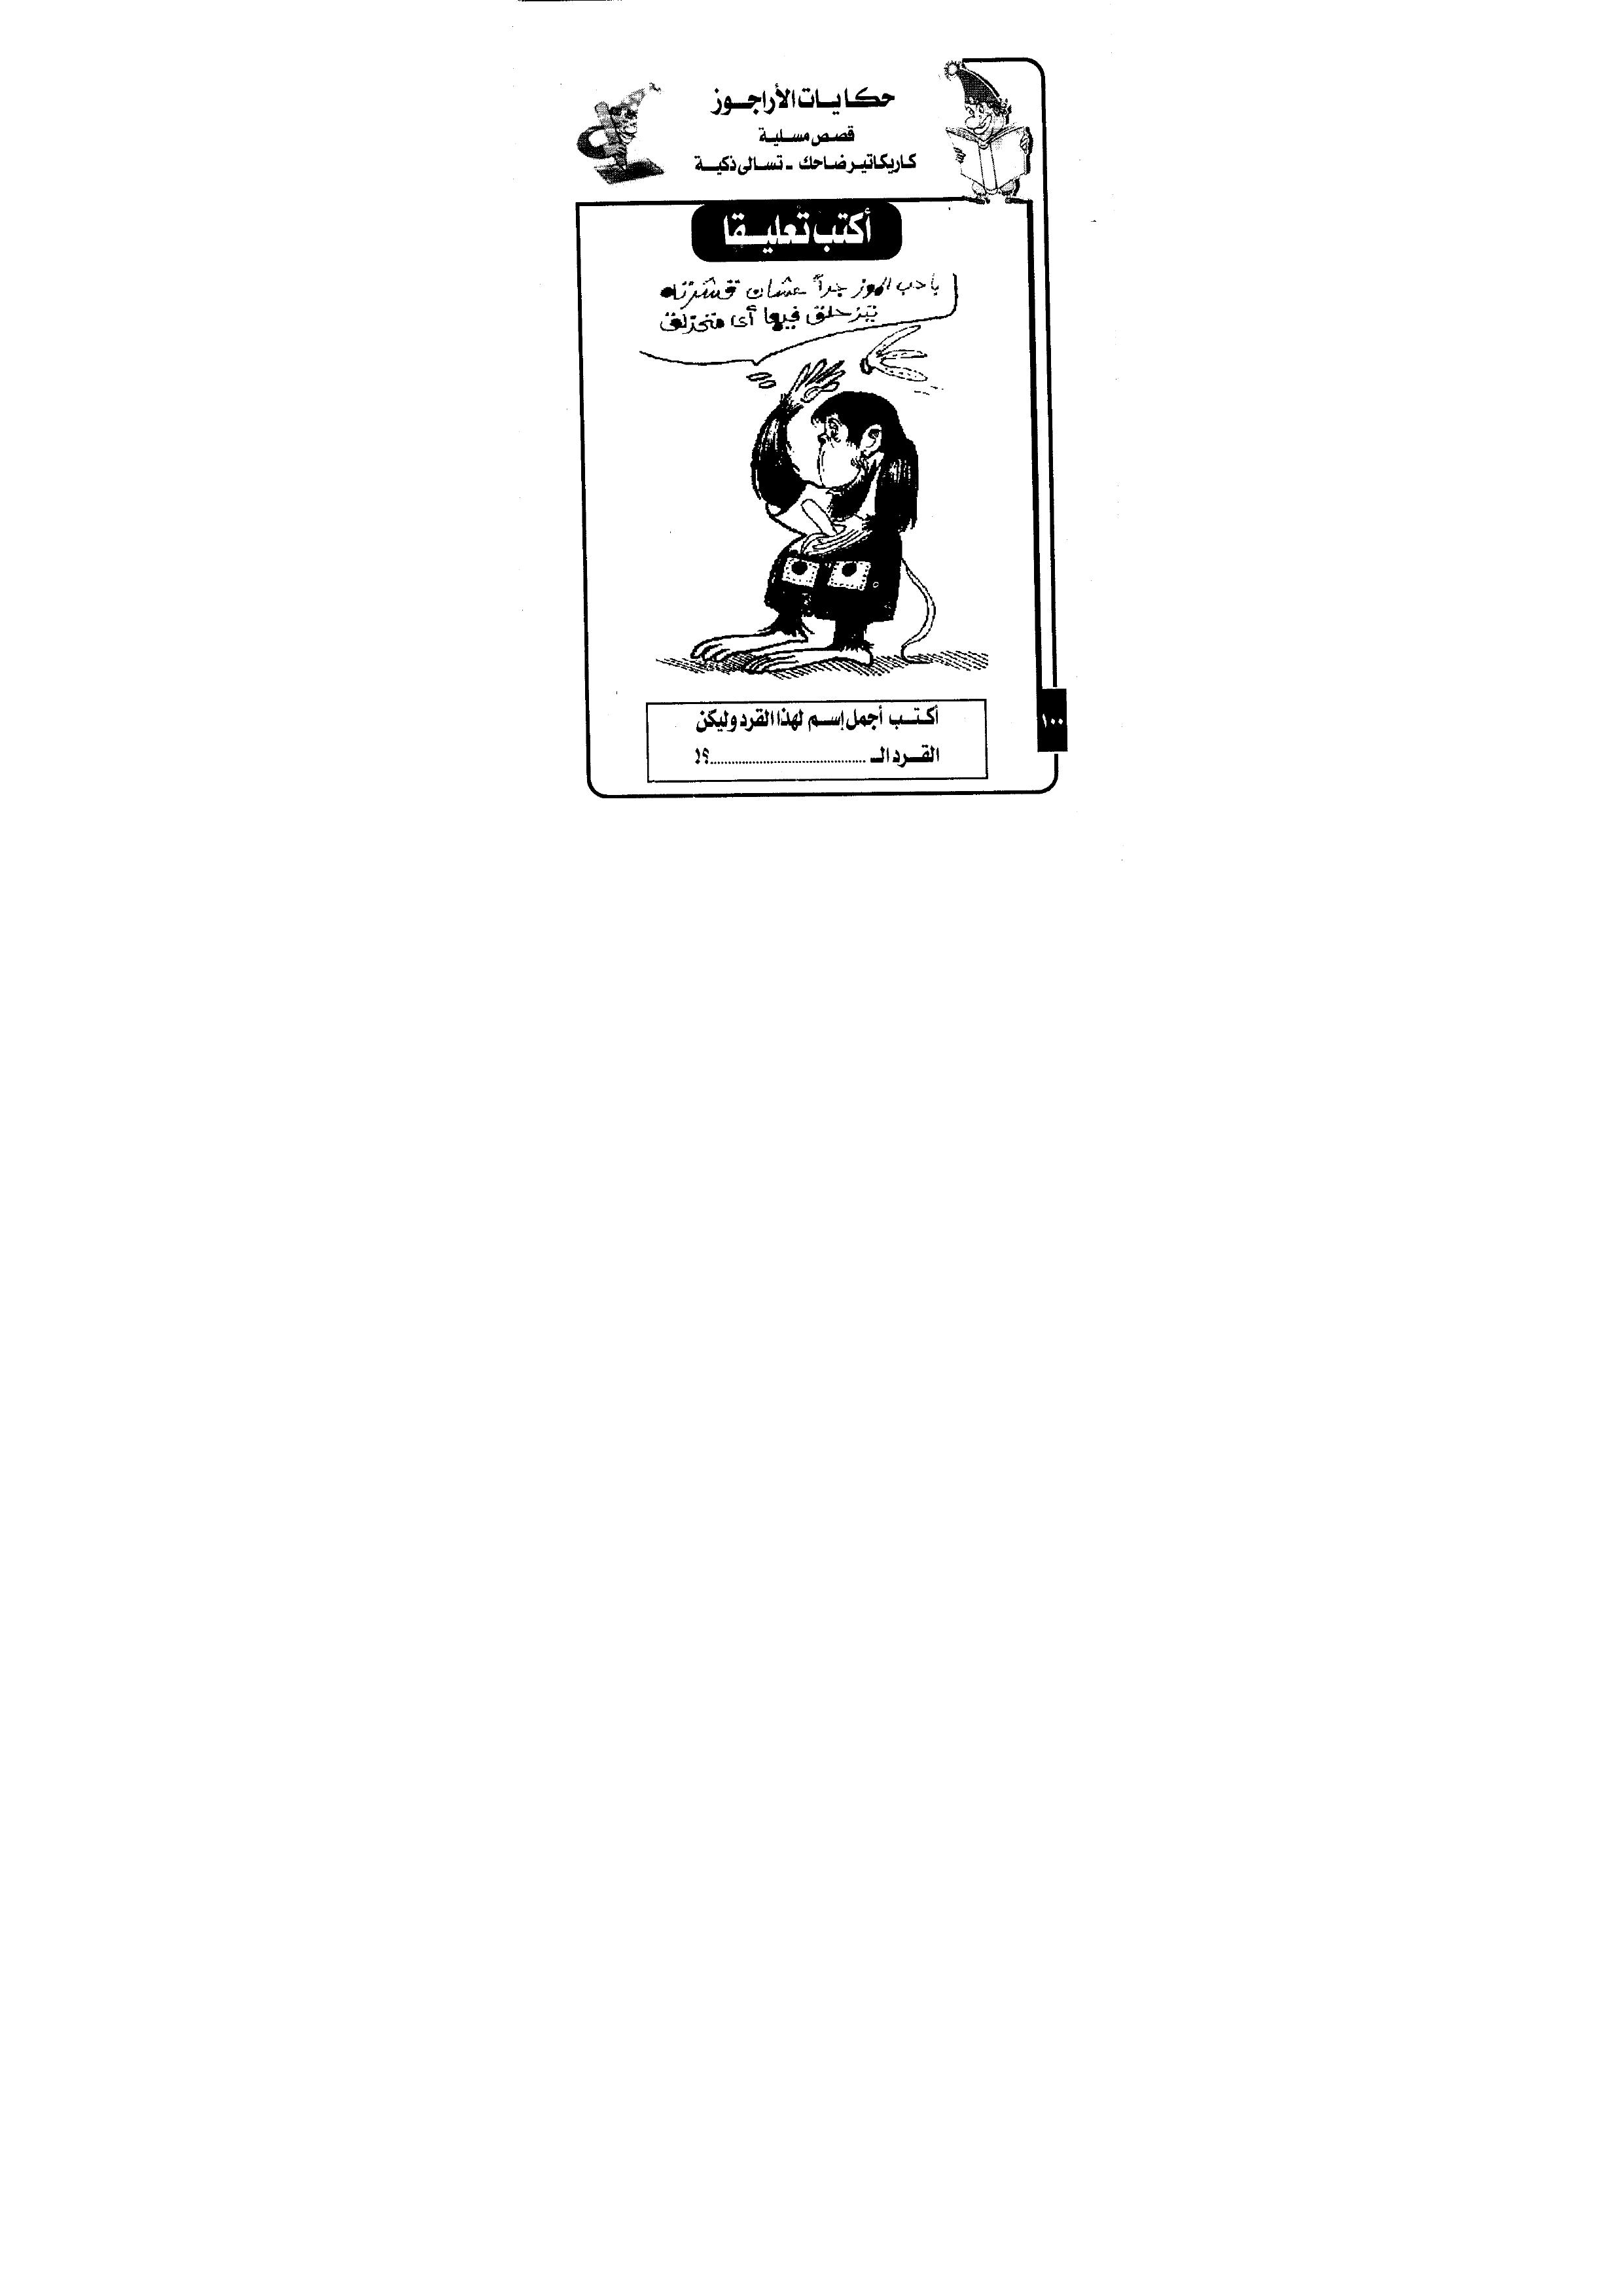 حكايات الأراجوز
قصص مسلية
كاريكاتير ضاحك - تسالى ذكية
أكتب تعليقا
باحب الموز جداً عشان قشرته
يتزحلق فيها أى متحزلق
أكتب أجمل إسم لهذا القرد وليكن
القرد الـ ......................................؟!
١٠٠